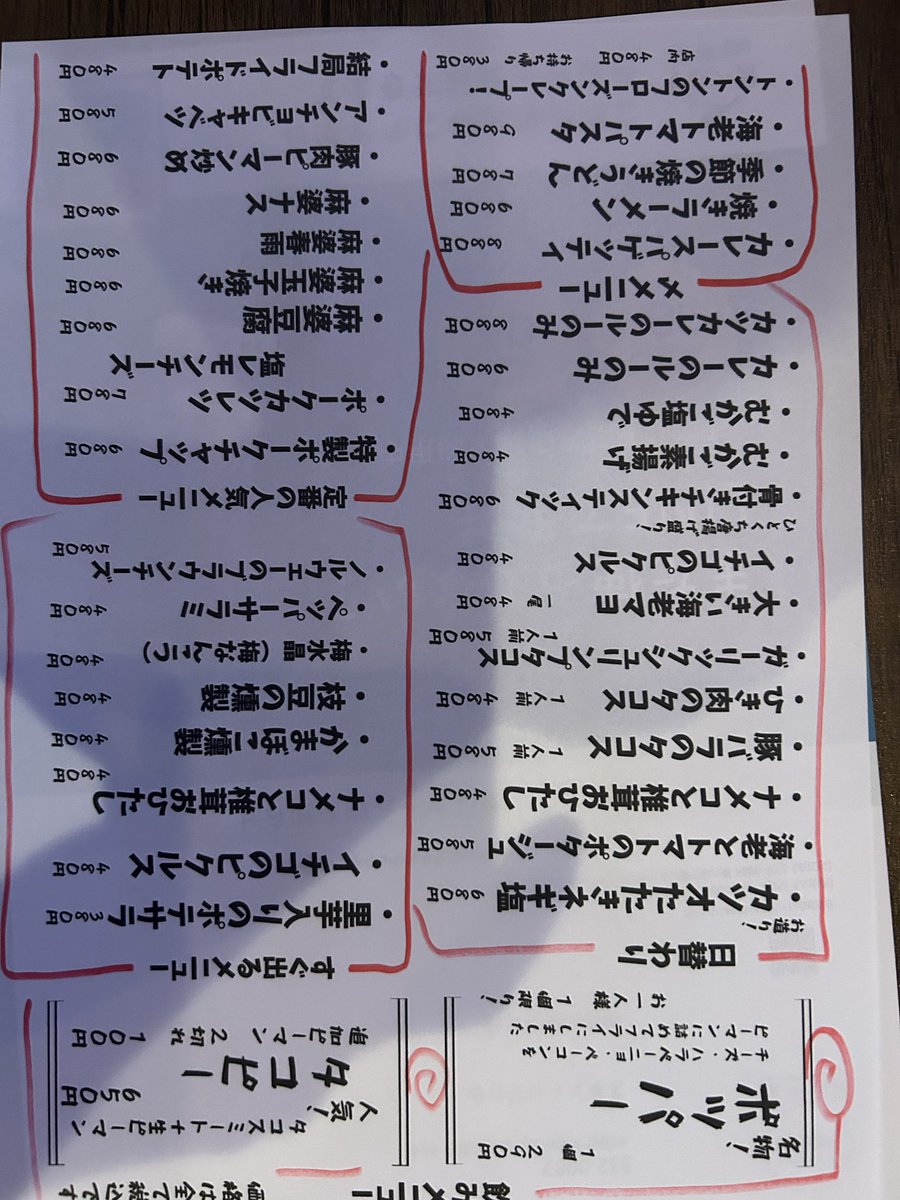 飲みメニュー
価格は全て税込です
名物!
1個 290円
ポッパー
チーズ・ハラペーニョ・ベーコンを
ピーマンに詰めてフライにしました
お一人様 1個限り!
タコスミート+生ピーマン
人気!
タコピー 650円
追加ピーマン 2切れ 100円
日替わり
お造り!
・カツオたたきネギ塩 680円
・海老とトマトのポタージュ 580円
・ナメコと椎茸おひたし 480円
・豚バラのタコス 1人前 580円
・ひき肉のタコス 1人前 480円
・ガーリックシュリンプタコス
1人前 580円
・大きい海老マヨ 一尾 480円
・イチゴのピクルス 480円
ひとくち唐揚げ盛り!
・骨付きチキンスティック 680円
・むかご素揚げ 480円
・むかご塩ゆで 480円
・カレーのルーのみ 680円
・カツカレーのルーのみ 880円
〆メニュー
・カレースパゲッティ 880円
・焼きラーメン 680円
・季節の焼きうどん 780円
・海老トマトパスタ 980円
・トントンのフローズンクレープ!
店内 480円 お持ち帰り 380円
すぐ出るメニュー
・里芋入りのポテサラ 380円
・イチゴのピクルス 480円
・ナメコと椎茸おひたし
480円
・かまぼこ燻製 480円
・枝豆の燻製 480円
・梅水晶(梅なんこつ) 480円
・ペッパーサラミ 480円
・ノルウェーのブラウンチーズ
580円
定番の人気メニュー
・特製ポークチャップ 680円
・ポークカツレツ 780円
塩レモンチーズ
・麻婆豆腐 680円
・麻婆玉子焼き 680円
・麻婆春雨 680円
・麻婆ナス 680円
・豚肉ピーマン炒め 680円
・アンチョビキャベツ 580円
・結局フライドポテト 480円